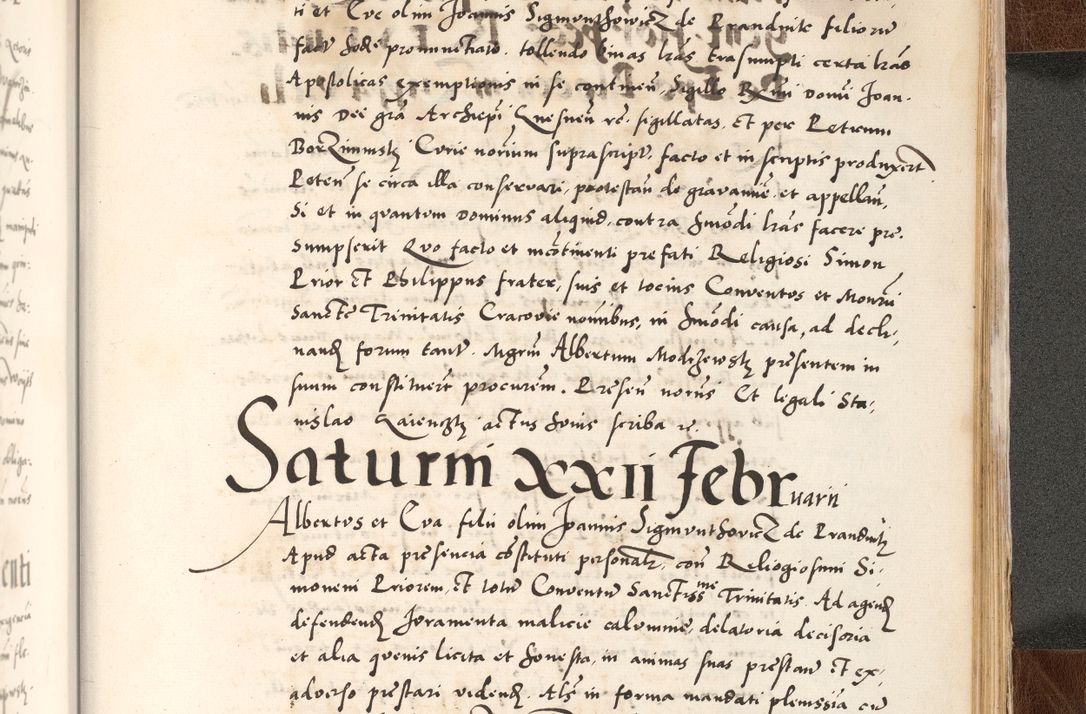 ti et Eve olim Joannis Sigmunthowicz de Prandnite filiorum
fact hocce pronunctiato. tollendo binas lras trasumpti certa lras
Apostolicas exemptionis in se continen, Sigillo Rmi Domi Joan-
nis Dei gra Archiepi Gnesnen rc. sigillatas, Et per Petrum
Borziminsky Curie norium suprascript, facto et in scriptis produxert
Peten se circa illa conservari, protestan de gravamine et appellan,
Si et in quantum Dominus aliquid, contra Jmodi lras facere pre-
sumpserit Quo facto et incotinenti prefati Religiosi Simon
Prior Et Philippus frater, suis et tocius Conventus et Monrii
Sancte Trinitatis Cracovie nomibus, in Jmodi causa, ad decli-
nand forum tant. Mgrm Albertum Modrzewsky presentem in
suum constituert procurem. Presen norius Et legali Sta-
nislao actus hvius scriba rc.
Saturni XXII Februarii
Albertus et Eva filii olim Joannis Sigmunthowicz de Prandnik
Apud acta presencia costituti personalr, con Religiosum Si-
monem Priorem, Et totu Conventu Sanctissme Trinitatis. Ad agend
defendend Joramenta malicie calumnie, delatoria decisoria
et alia quevis licita et honesta, in animas suas prestan Et ex-
adverso prestari vidend. Als in forma mandati plenissia cu